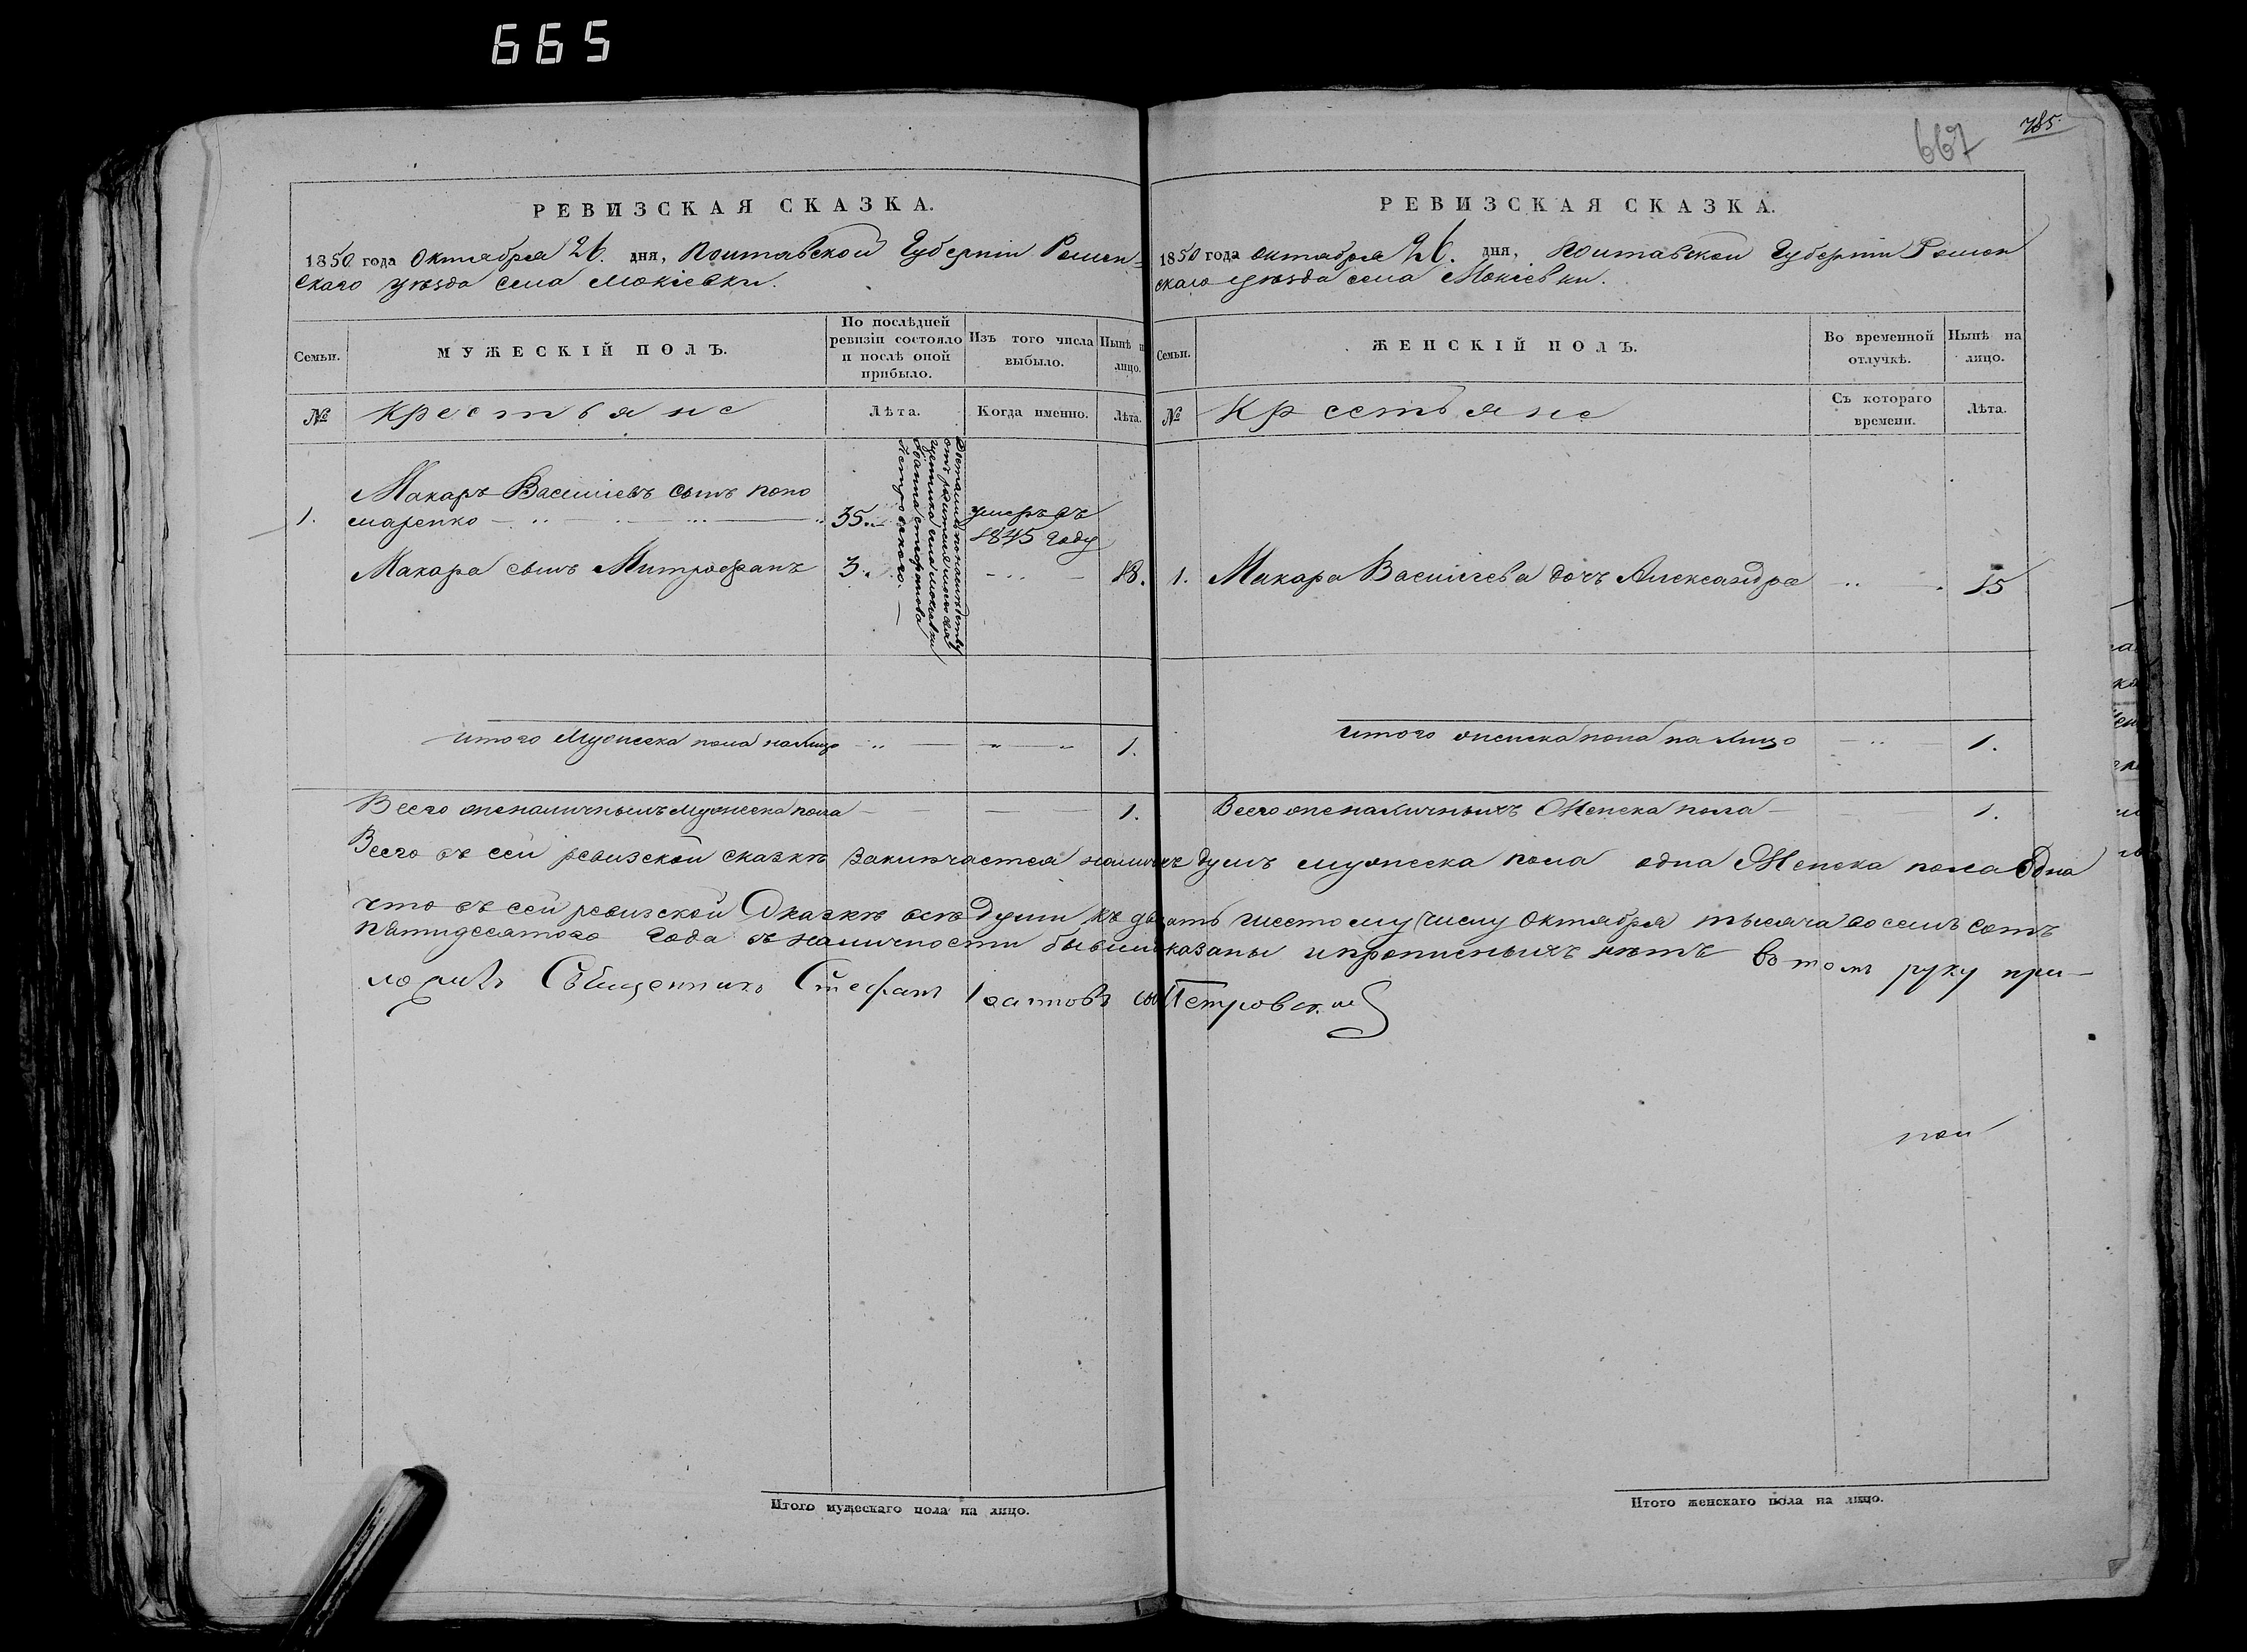 665
667
785.
РЕВИЗСКАЯ СКАЗКА.
1850 года Октября 26. дня, Полтавской Губерніи Ромен-
скаго уѣзда села Мокіевки.
Семьи.
МУЖЕСКІЙ ПОЛЪ.
По послѣдней
ревизіи состояло
и послѣ оной
прибыло.
Изъ того числа
выбыло.
Нынѣ н
лицо.
№
Крестьяне
Лѣта.
Когда именно.
Лѣта.
1.
Макаръ Васильевъ сынъ поно
маренко
35.
умеръ въ
1845 Году
Макара сынъ Митрофанъ
3.
18.
Достались по наслѣдству
отъ родителя моего свя
щенника села Мокіевки
Іоанна
Петровского.
Итого Мужеска пола налицо
1.
Всего же наличныхъ мужеска пола
1.
РЕВИЗСКАЯ СКАЗКА.
1850 года Октября 26. дня, Полтавской Губерніи Ромен
скаго уѣзда села Мокіевки.
Семьи.
ЖЕНСКІЙ ПОЛЪ.
Во временной
отлучкѣ.
Нынѣ на
лицо.
№
Крестьяне
Съ котораго
времени.
Лѣта.
1.
Макара Васильева дочь Александра
15
Итого женска пола на лицо
1.
Всего же наличныхъ Женска пола
1.
Всего въ сей ревизской сказкѣ заключается наличныхъ душъ мужеска пола одна Женска пола Одна
что въ сей ревизской Сказкѣ всѣ Души къ двадцать шестому числу Октября тысяча восемь сотъ
пятидесятого Года въ наличности бывши показаны и прописныхъ нѣтъ въ томъ руку при-
ложилъ Священникъ Стефанъ Іоанновъ сынъ Петровскій
Итого мужескаго пола на лицо.
Итого женскаго пола на лицо.